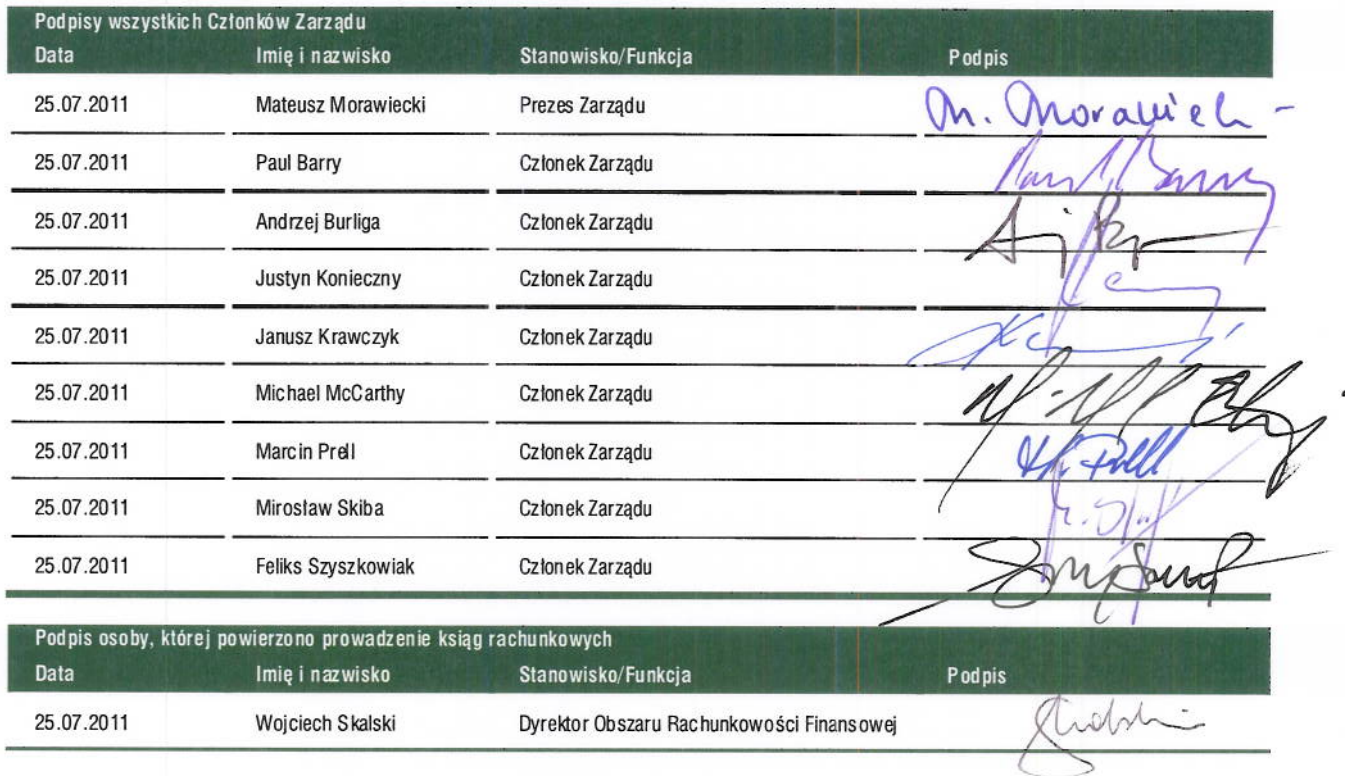 Podpisy wszystkich Członków Zarządu
Data Imię i nazwisko Stanowisko/Funkcja Podpis
25.07.2011 Mateusz Morawiecki Prezes Zarządu M. Morawiecki
25.07.2011 Paul Barry Członek Zarządu Paul Barry
25.07.2011 Andrzej Burliga Członek Zarządu
25.07.2011 Justyn Konieczny Członek Zarządu
25.07.2011 Janusz Krawczyk Członek Zarządu
25.07.2011 Michael McCarthy Członek Zarządu
25.07.2011 Marcin Prell Członek Zarządu M. Prell
25.07.2011 Mirosław Skiba Członek Zarządu
25.07.2011 Feliks Szyszkowiak Członek Zarządu
Podpis osoby, której powierzono prowadzenie ksiąg rachunkowych
Data Imię i nazwisko Stanowisko/Funkcja Podpis
25.07.2011 Wojciech Skalski Dyrektor Obszaru Rachunkowości Finansowej